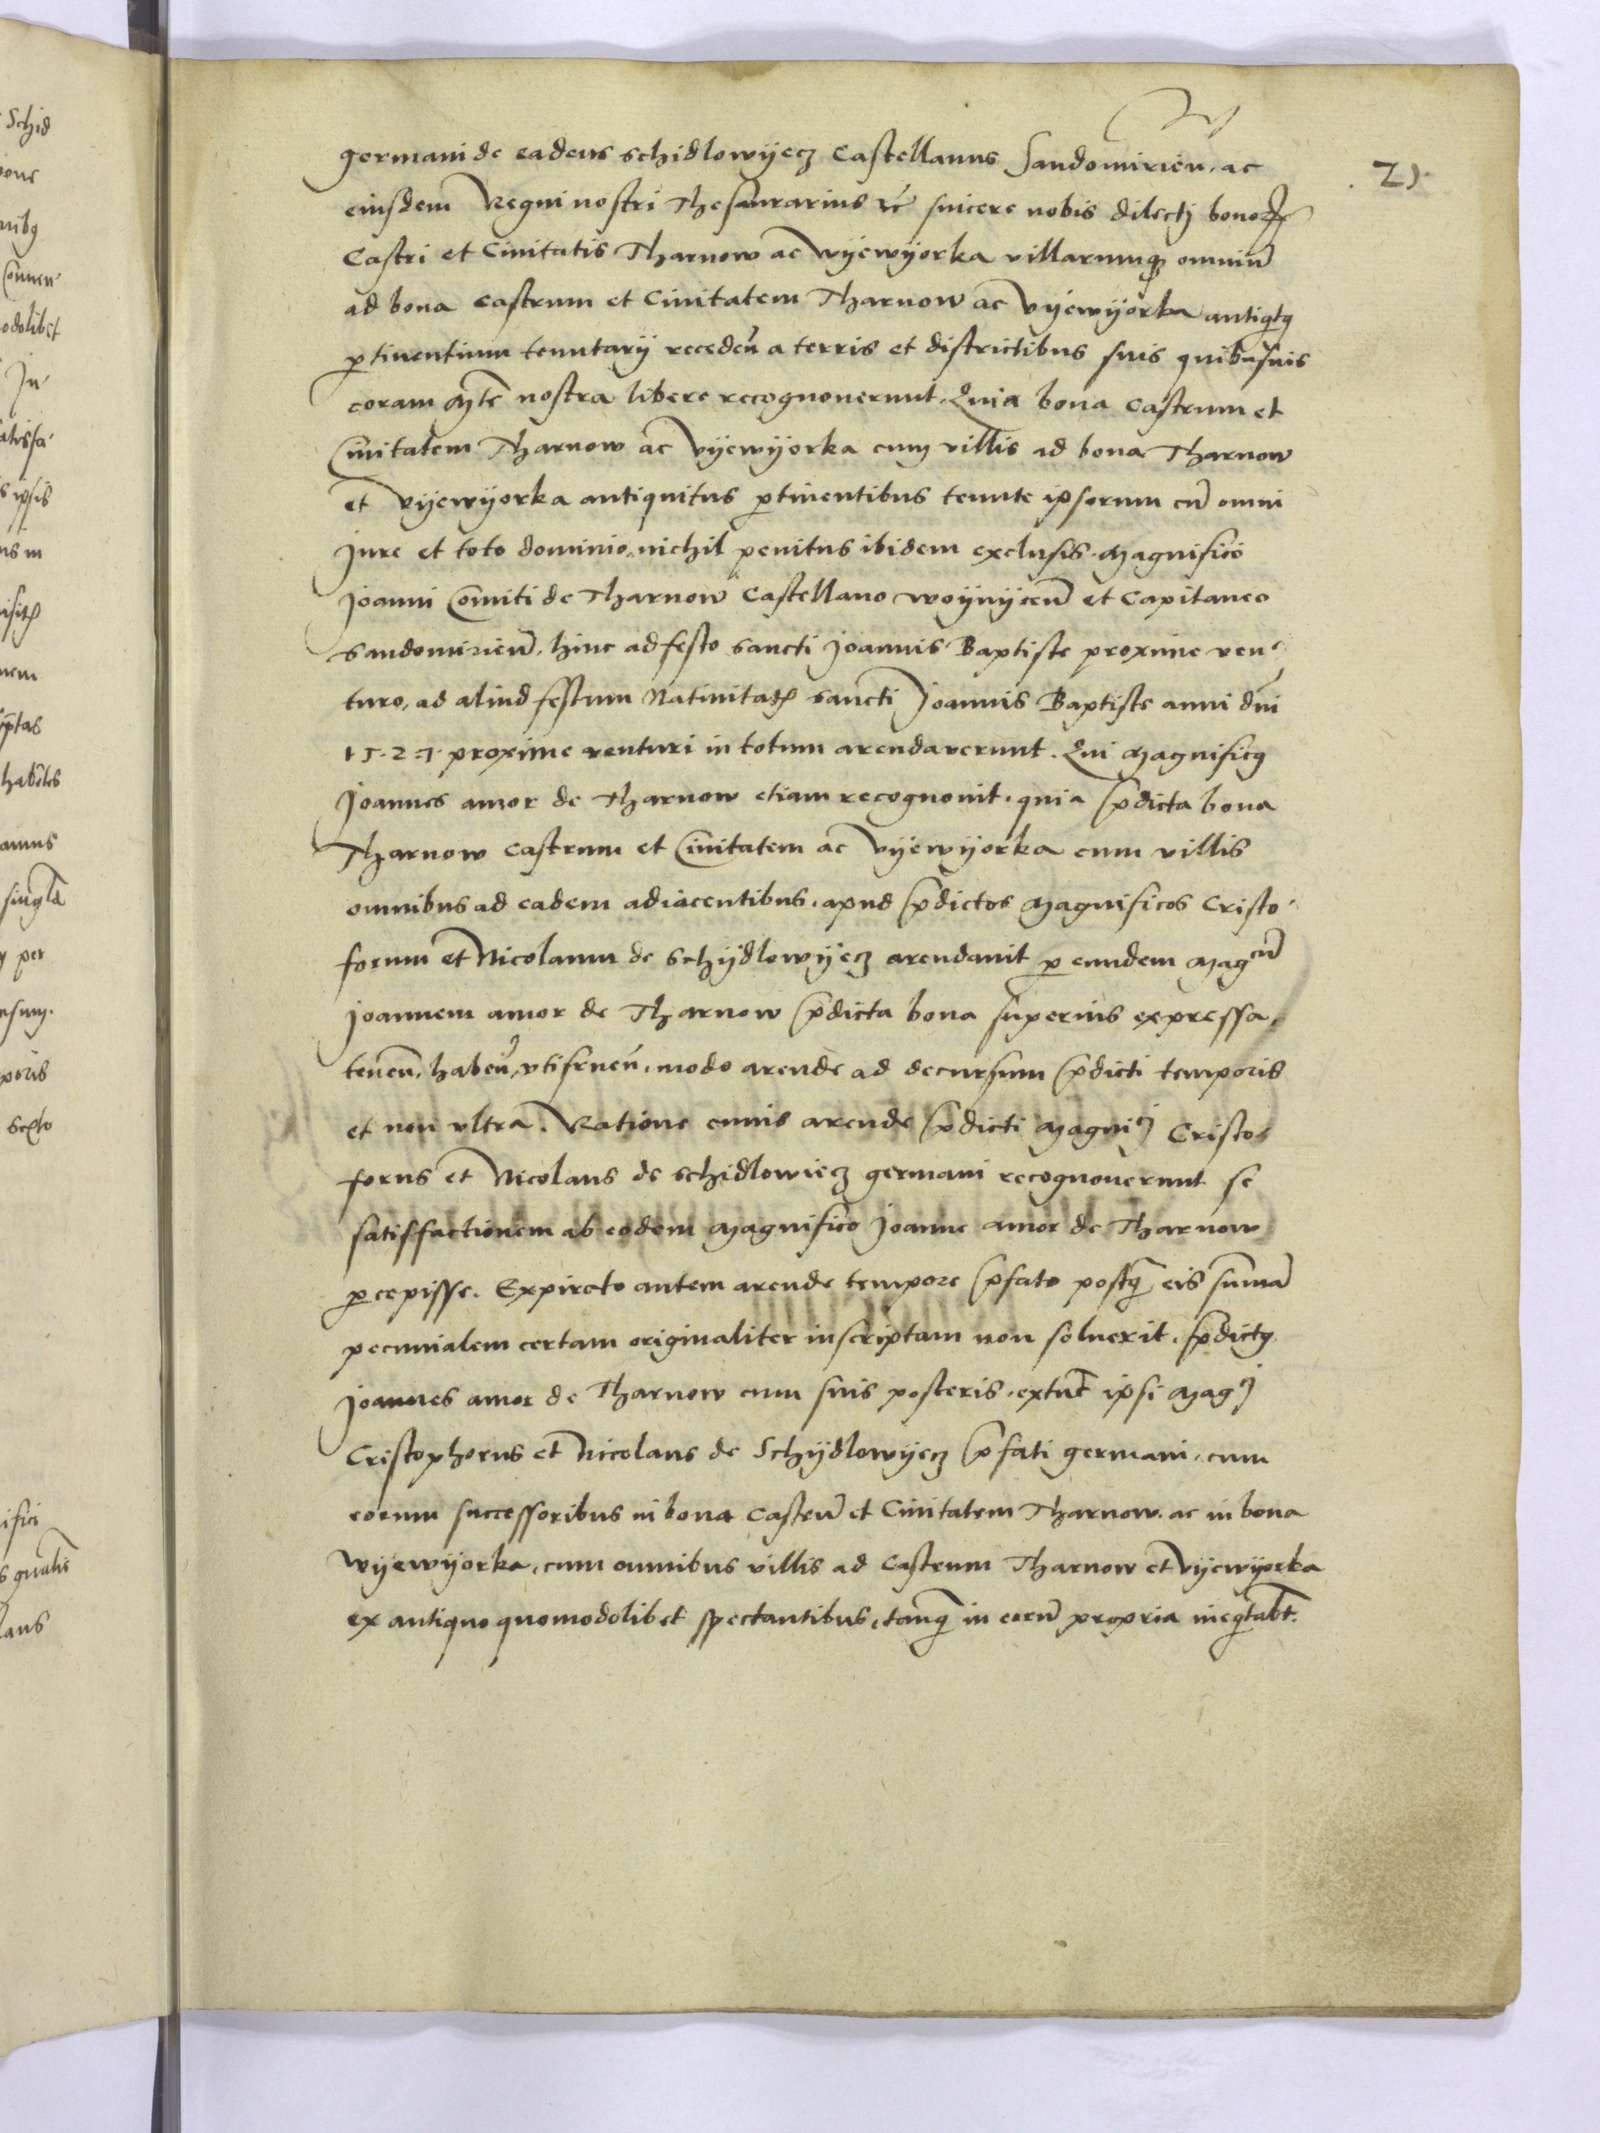 21.
germani de eadem Schidlowyecz Castellanus Sandomirien. ac
eiusdem Regni nostri Thesaurarius etc̄ sincere nobis dilecti bonoꝝ
Castri et Civitatis Tharnow ac Wyewyorka villarumqꝫ omniū
ad bona castrum et Civitatem Tharnow ac Vyewyorka antiqtꝰ
ꝑtinentium tenutarij recedeñ a terris et districtibus suis quibusuis
coram Mte nostra libere recognouerunt. Quia bona castrum et
Ciuitatem Tharnow ac Vyewyorka cum villis ad bona Tharnow
et Vyewyorka antiquitus ꝑtinentibus tenute ipsorum cū omni
Jure et toto dominio, nichil penitus ibidem exclusis. Magnifico
Joanni Comiti de Tharnow Castellano Woynyceñ et Capitaneo
Sandomirieñ. hinc ad festo sancti Joannis Baptiste proxime ven
turo, ad aliud festum Natiuitatꝭ sancti Joannis Baptiste anni dñi
1527 proxime venturi in totum arendaverunt. Qui Magnificꝰ
Joannes amor de Tharnow etiam recognouit. quia p̄dicta bona
Tharnow castrum et Ciuitatem ac Vyewyorka cum villis
omnibus ad eadem adiacentibus. apud p̄dictos Magnificos Cristo
forum et Nicolaum de Schydlowyecz arendauit ꝑ eundem Magcū
Joannem amor de Tharnow p̄dicta bona superius expressa,
teneñ. habeñ, vtifrueñ. modo arende ad decursum p̄dicti temporis
et non vltra. Ratione cuius arende p̄dicti Magnici Cristo
forus et Nicolaus de Schidlowiecz germani recognouerunt se
satisfactionem ab eodem Magnifico Joanne amor de Tharnow
ꝑcepisse. Expirato autem arende tempore p̄fato postqꝫ eis sum̄ā
pecunialem certam originaliter inscriptam non soluerit. p̄dictꝰ
Joannes amor de Tharnow cum suis posteris. extūc ipsi Magci
Cristophorus et Nicolaus de Schydlowyecz p̄fati germani. cum
eorum successoribus in bona Castrū et Ciuitatem Tharnow. ac in bona
Wyewyorka, cum omnibus villis ad Castrum Tharnow et Vyewyorka
ex antiquo quomodolibet spectantibus, tanqꝫ in eorū propria